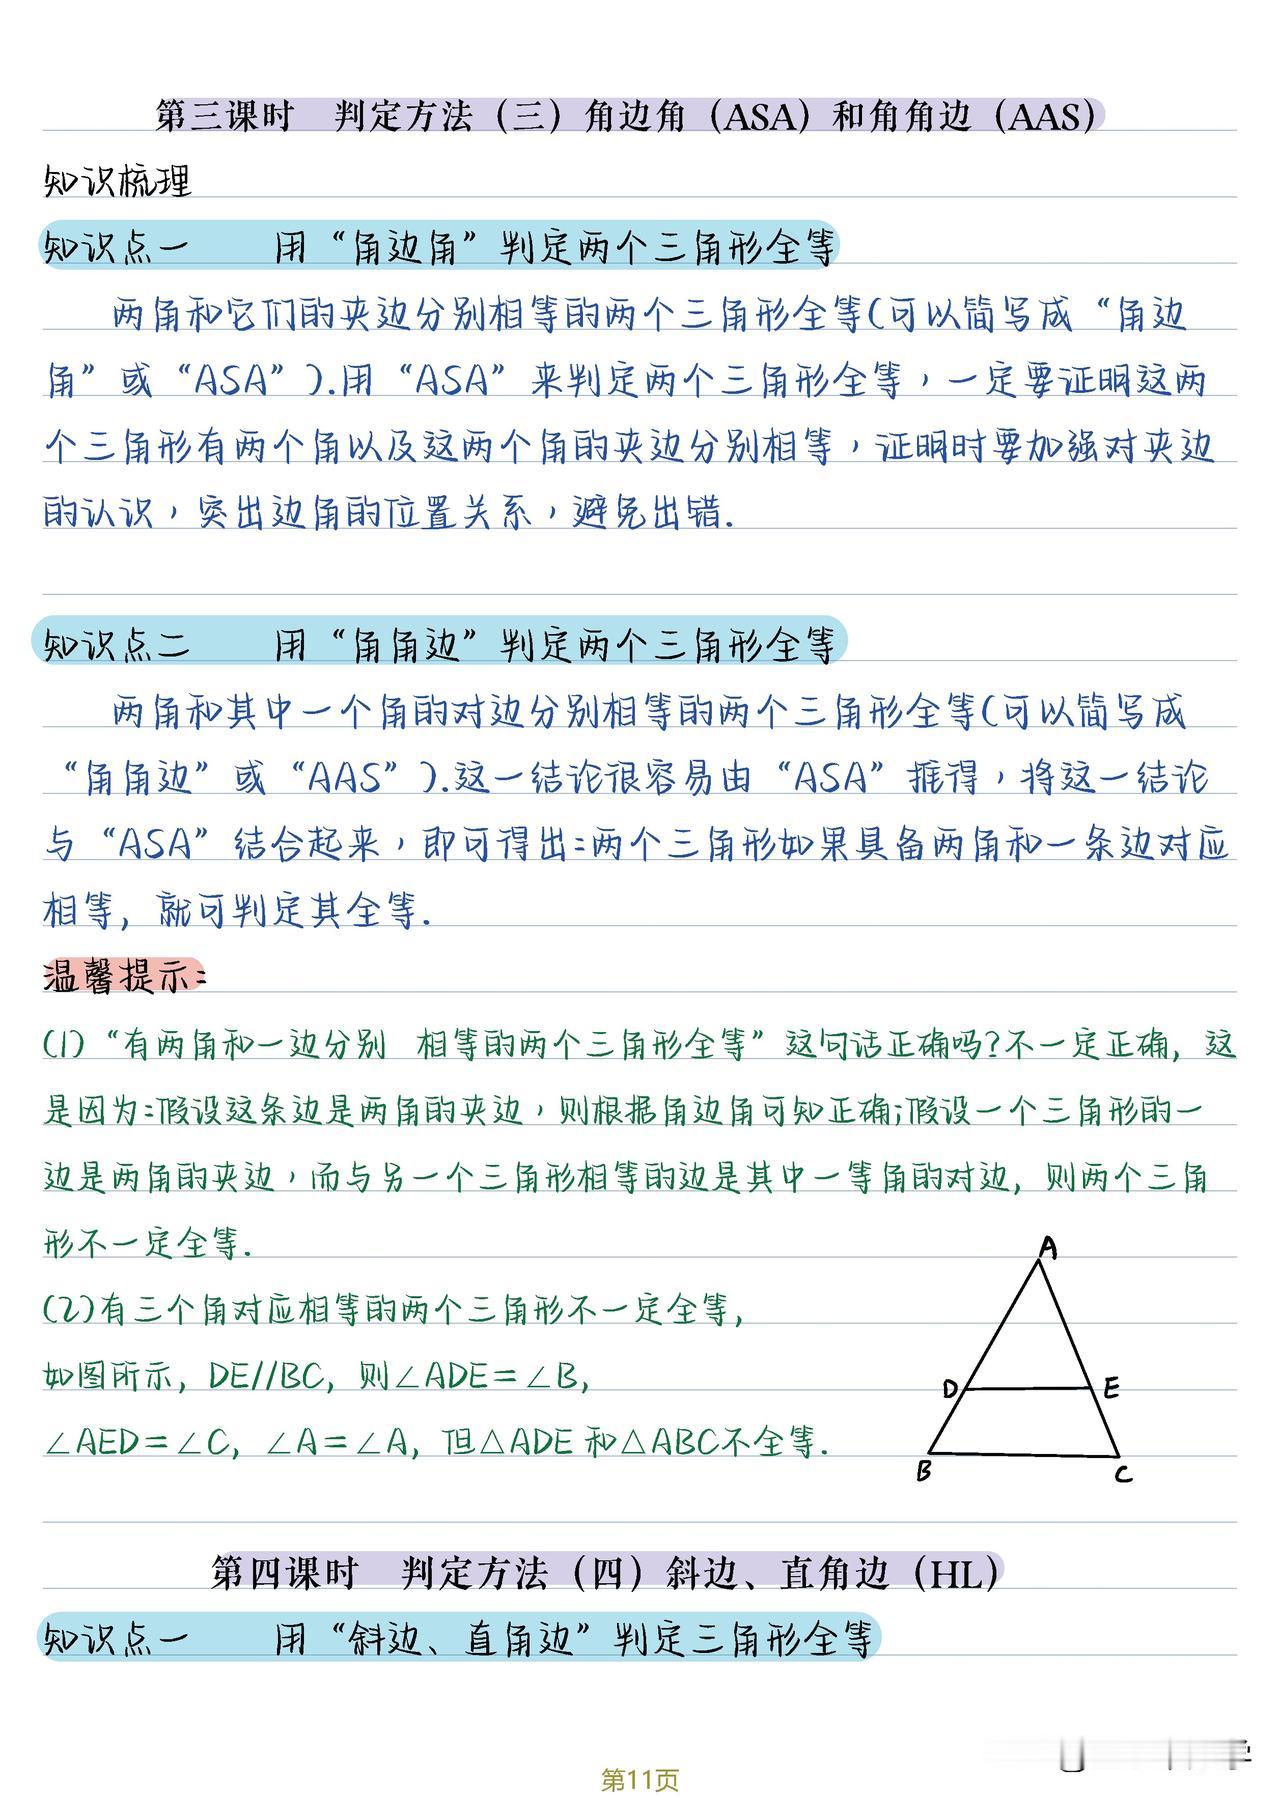 第三课时 判定方法（三）角边角（ASA）和角角边（AAS）
知识梳理
知识点一 用“角边角”判定两个三角形全等
两角和它们的夹边分别相等的两个三角形全等(可以简写成“角边
角”或“ASA”).用“ASA”来判定两个三角形全等，一定要证明这两
个三角形有两个角以及这两个角的夹边分别相等，证明时要加强对夹边
的认识，突出边角的位置关系，避免出错.
知识点二 用“角角边”判定两个三角形全等
两角和其中一个角的对边分别相等的两个三角形全等(可以简写成
“角角边”或“AAS”).这一结论很容易由“ASA”推得，将这一结论
与“ASA”结合起来，即可得出:两个三角形如果具备两角和一条边对应
相等，就可判定其全等.
温馨提示:
(1)“有两角和一边分别 相等的两个三角形全等”这句话正确吗?不一定正确，这
是因为:假设这条边是两角的夹边，则根据角边角可知正确;假设一个三角形的一
边是两角的夹边，而与另一个三角形相等的边是其中一等角的对边，则两个三角
形不一定全等.
(2)有三个角对应相等的两个三角形不一定全等，
如图所示，DE//BC，则∠ADE=∠B，
∠AED=∠C，∠A=∠A，但△ADE和△ABC不全等.
A
D
E
B
C
第四课时 判定方法（四）斜边、直角边（HL）
知识点一 用“斜边、直角边”判定三角形全等
第11页